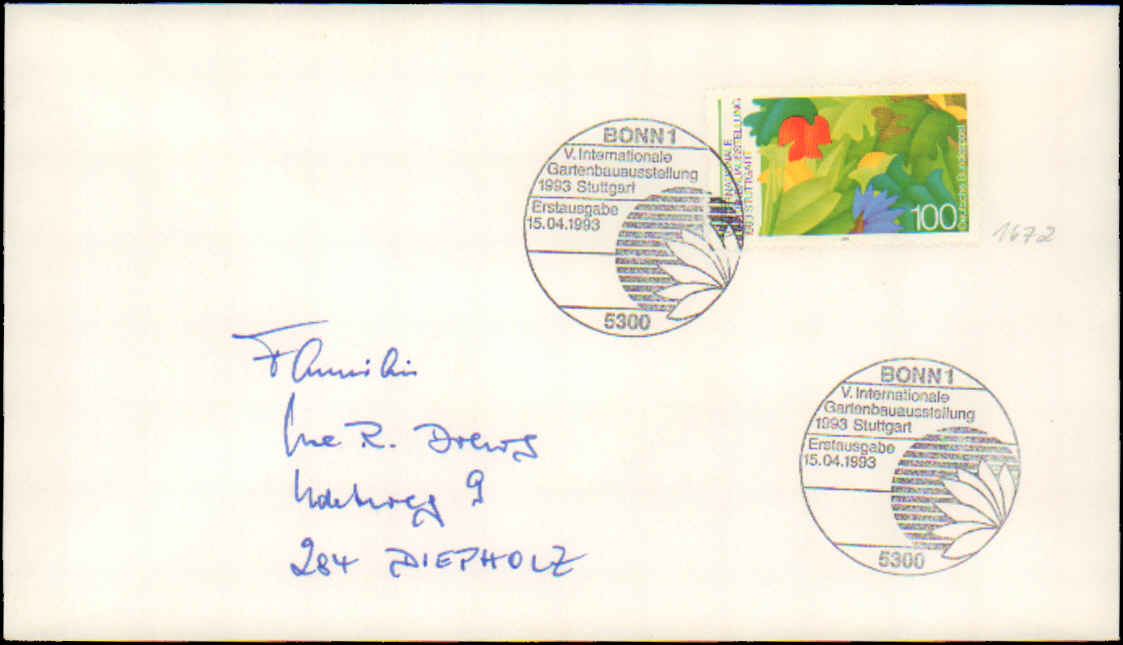 BONN 1
V. Internationale
Gartenbauausstellung
1993 Stuttgart
Erstausgabe
15.04.1993
5300
INTERNATIONALE
GARTENBAUAUSSTELLUNG
1993 STUTTGART
100
Deutsche Bundespost
1672
Familie
R. Drews
9
284 DIEPHOLZ
BONN 1
V. Internationale
Gartenbauausstellung
1993 Stuttgart
Erstausgabe
15.04.1993
5300